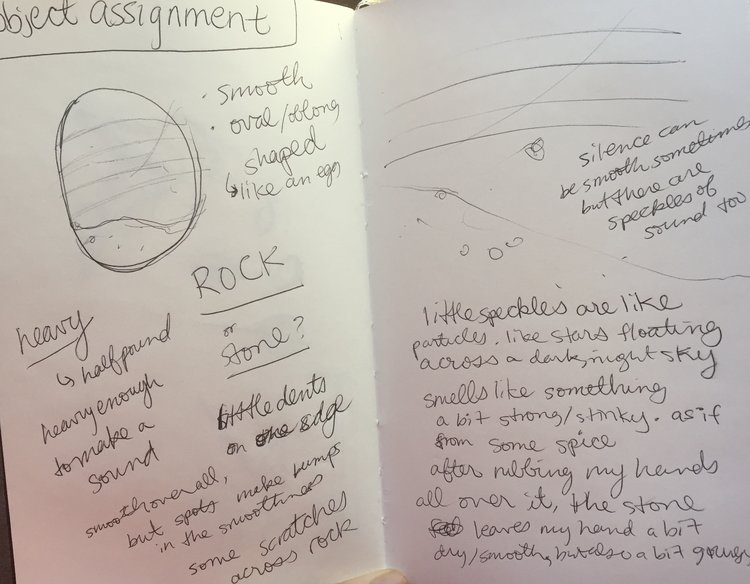 object assignment
· smooth
· oval/oblong
shaped
↳ like an egg
ROCK
or
stone?
heavy
↳ half pound
heavy enough
to make a
sound
little dents
on the edge
smooth over all,
but spots make bumps
in the smoothness
some scratches
across rock
silence can
be smooth sometimes
but there are
speckles of
sound too
little speckles are like
particles. like stars floating
across a dark, night sky
smells like something
a bit strong/stinky. as if
from some spice
after rubbing my hands
all over it, the stone
leaves my hand a bit
dry/smooth, but also a bit